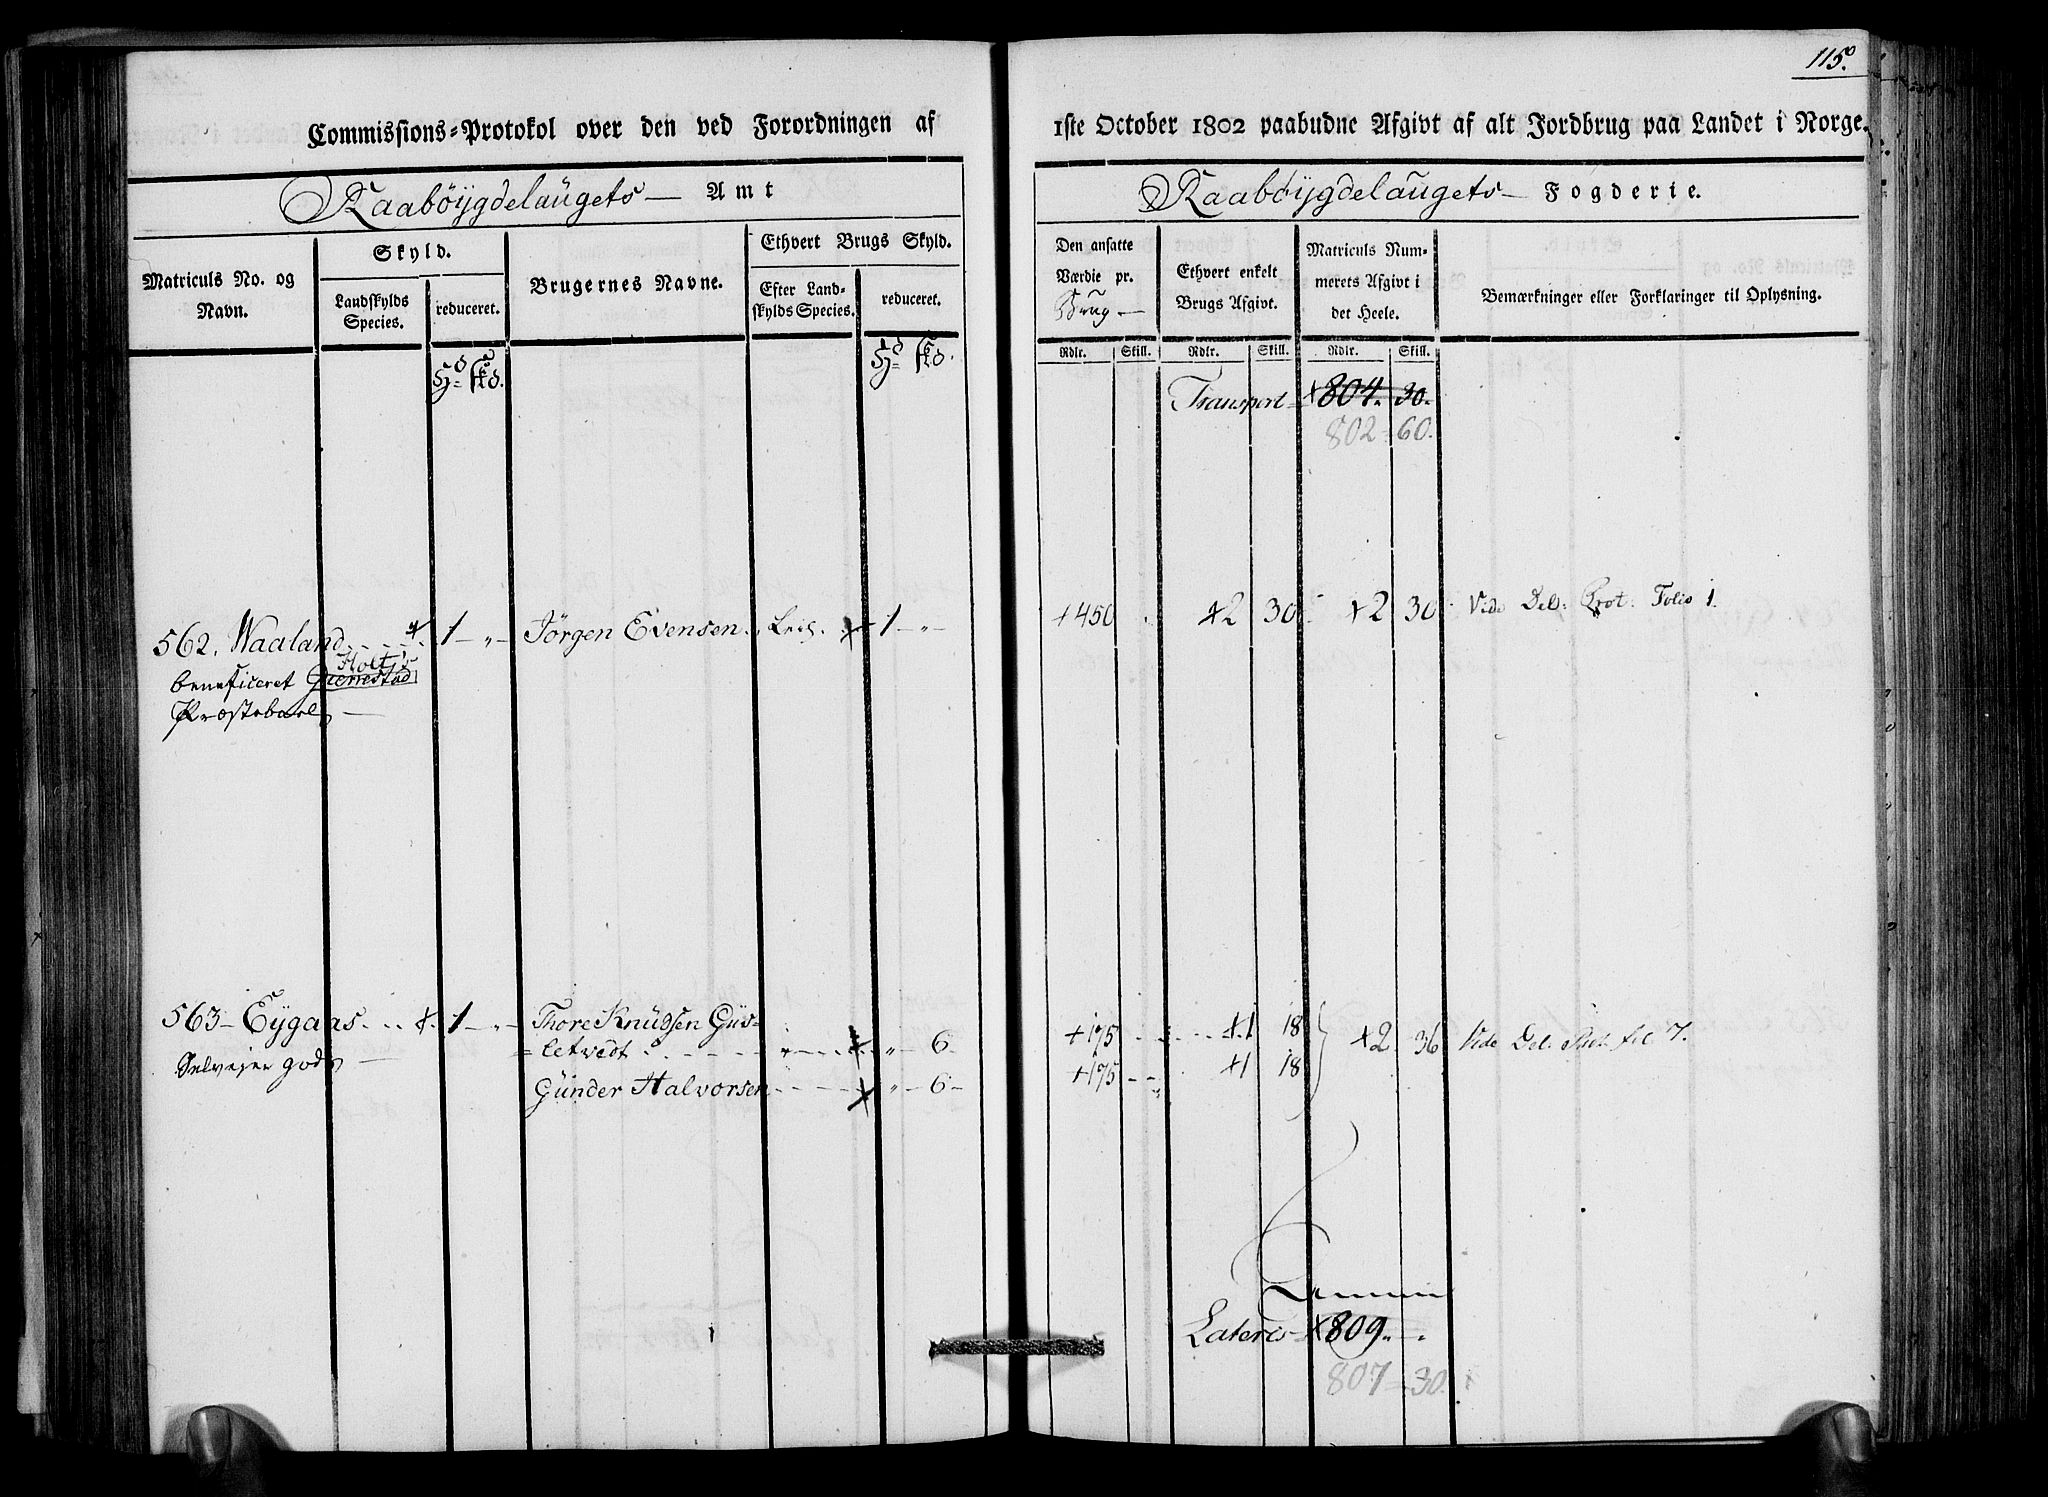 115.
Commissions-Protokol over den ved Forordningen af 1ste October 1802 paabudne Afgivt af alt Jordbrug paa Landet i Norge.
Raabøÿgdelaugets Amt
Raabøÿgdelaugets Fogderie.
Matriculs No. og Navn.
Skyld.
Landskylds Species.
reduceret.
Brugernes Navne.
Ethvert Brugs Skyld.
Efter Landskylds Species.
reduceret.
Den ansatte Værdie pr. Brug
Ethvert enkelt Brugs Afgivt.
Matriculs Nummerets Afgivt i det Heele.
Bemærkninger eller Forklaringer til Oplysning.
Rdlr. Skill. Rdlr. Skill. Rdlr. Skill.
Transport 804. 30.
802 = 60.
562. Waaland 1 - " - Jørgen Evensen 1 - " - +450 +2 30 +2 30 Vide Del: Prot: Folio 1.
Holt
beneficeret Gierrestad
Præstebord
563 - Eÿgaas 1 - " - Thore Knudsen Gus=
=letvedt " - 6 - +175 +1 18 +2 36 Vide Del. Prot. fol 7.
Selveier gods
Günder Halvorsen " - 6 - +175 +1 18
Lateris 809. "
807 = 30.